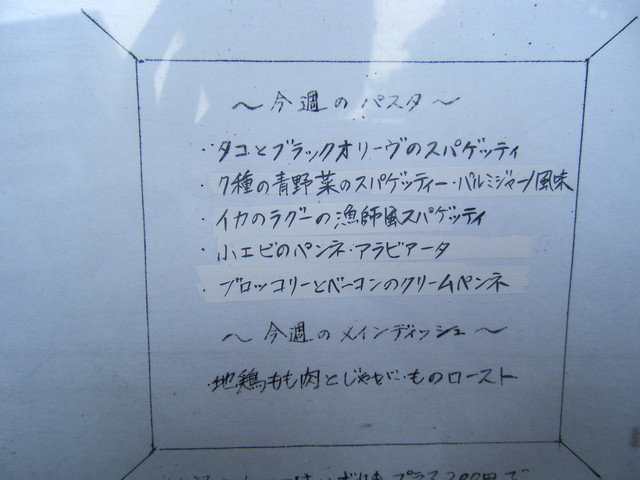 ～今週のパスタ～
・タコとブラックオリーヴのスパゲッティ
・7種の青野菜のスパゲッティー・パルミジャーノ風味
・イカのラグーの漁師風スパゲッティ
・小エビのペンネ・アラビアータ
・ブロッコリーとベーコンのクリームペンネ
～今週のメインディッシュ～
・地鶏もも肉とじゃがいものロースト
プラス200円で